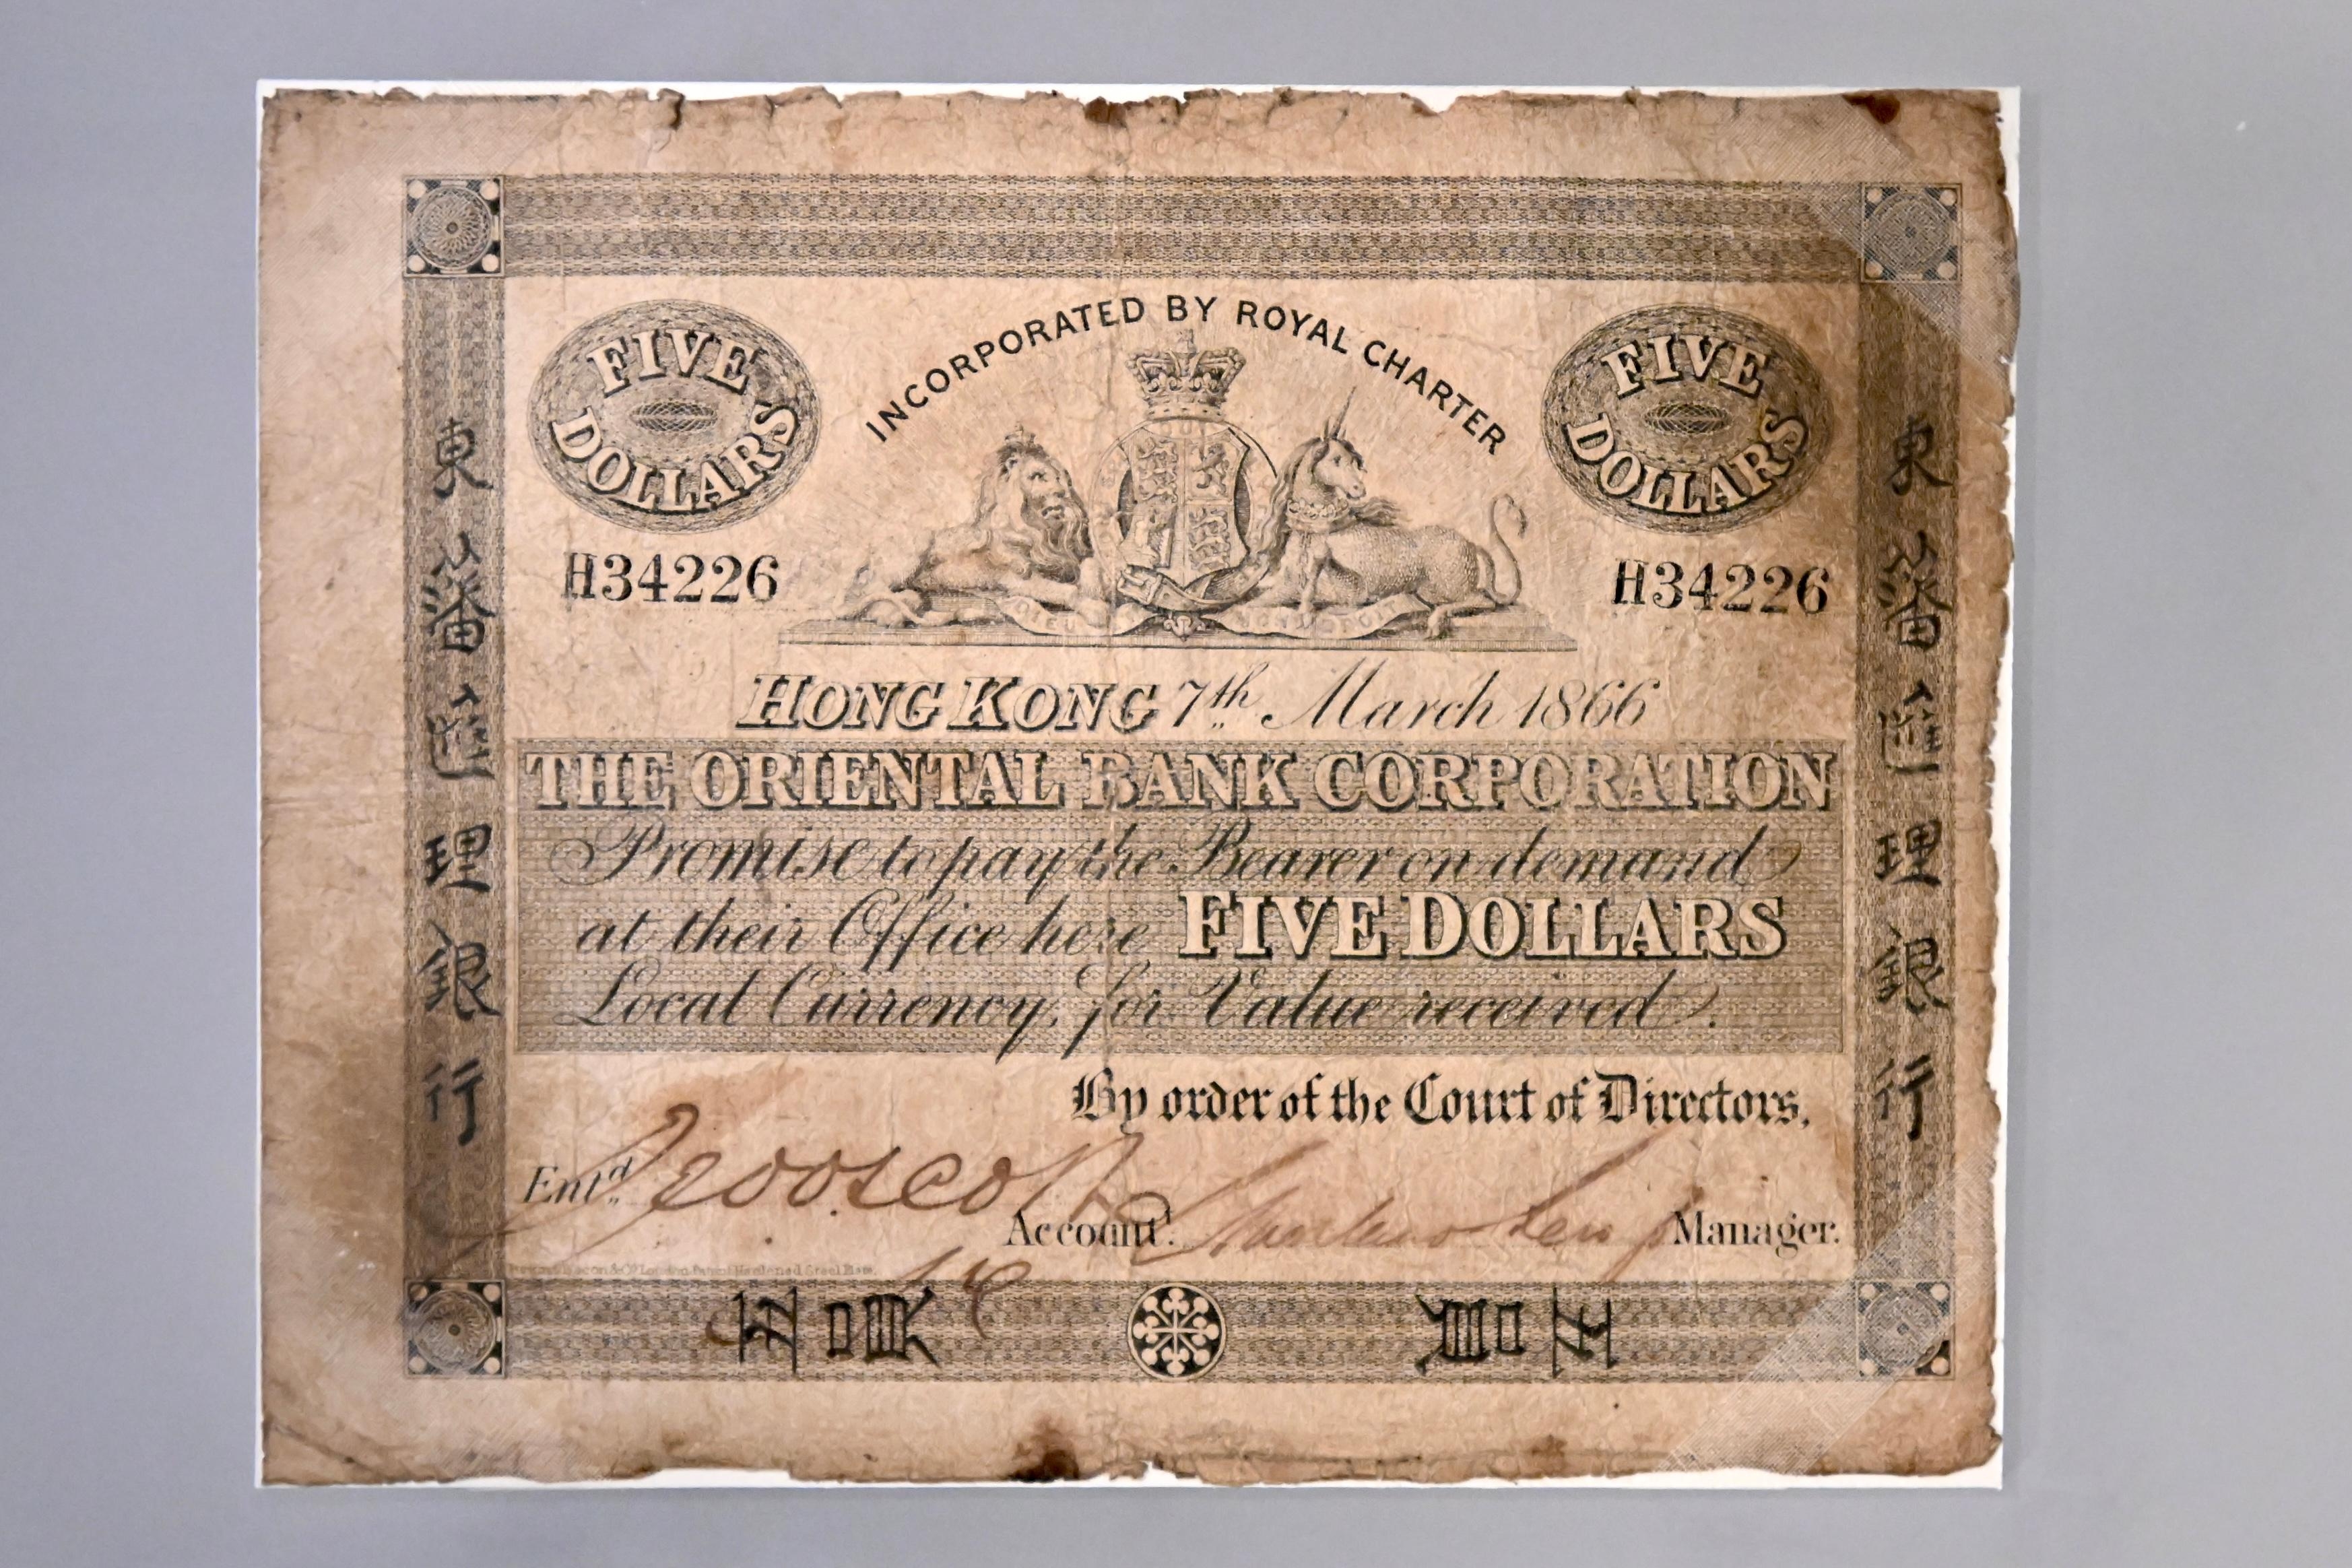 INCORPORATED BY ROYAL CHARTER
FIVE DOLLARS
FIVE DOLLARS
H34226
H34226
HONG KONG 7th March 1866
THE ORIENTAL BANK CORPORATION
Promise to pay the Bearer on demand
at their Office here FIVE DOLLARS
Local Currency, for Value received.
By order of the Court of Directors.
Entd.
Accountt.
Manager.
London Patent Hardened Steel Plate.
東藩匯理銀行
東藩匯理銀行
五員
五員